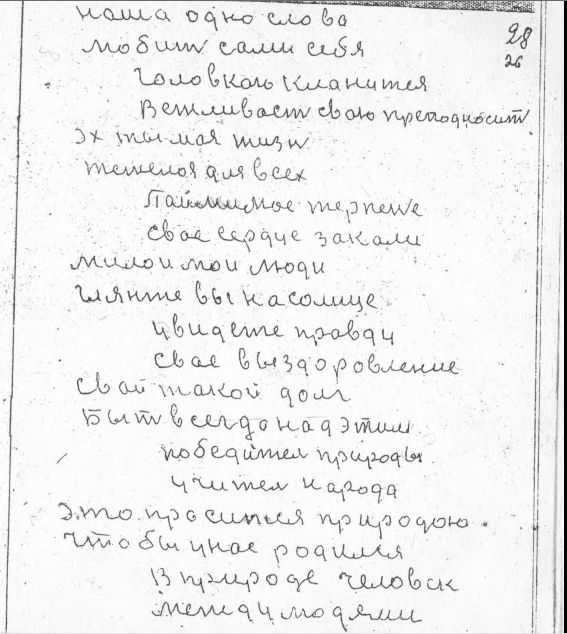 наша одно слова
28
26
любит сами себя
головкою кланится
Вежливаст сваю преподносит
Эх ты моя жизн
тежелоя для всех
Паймимое терпение
свае сердце закали
милои мои люди
гляните вы на солнце
увидете правду
свае выздоровление
Свай такой долг
Быт всегда над этим
победител природы
учител народа
Это просится природою.
Чтобы у нас родился
В природе человек
между людями